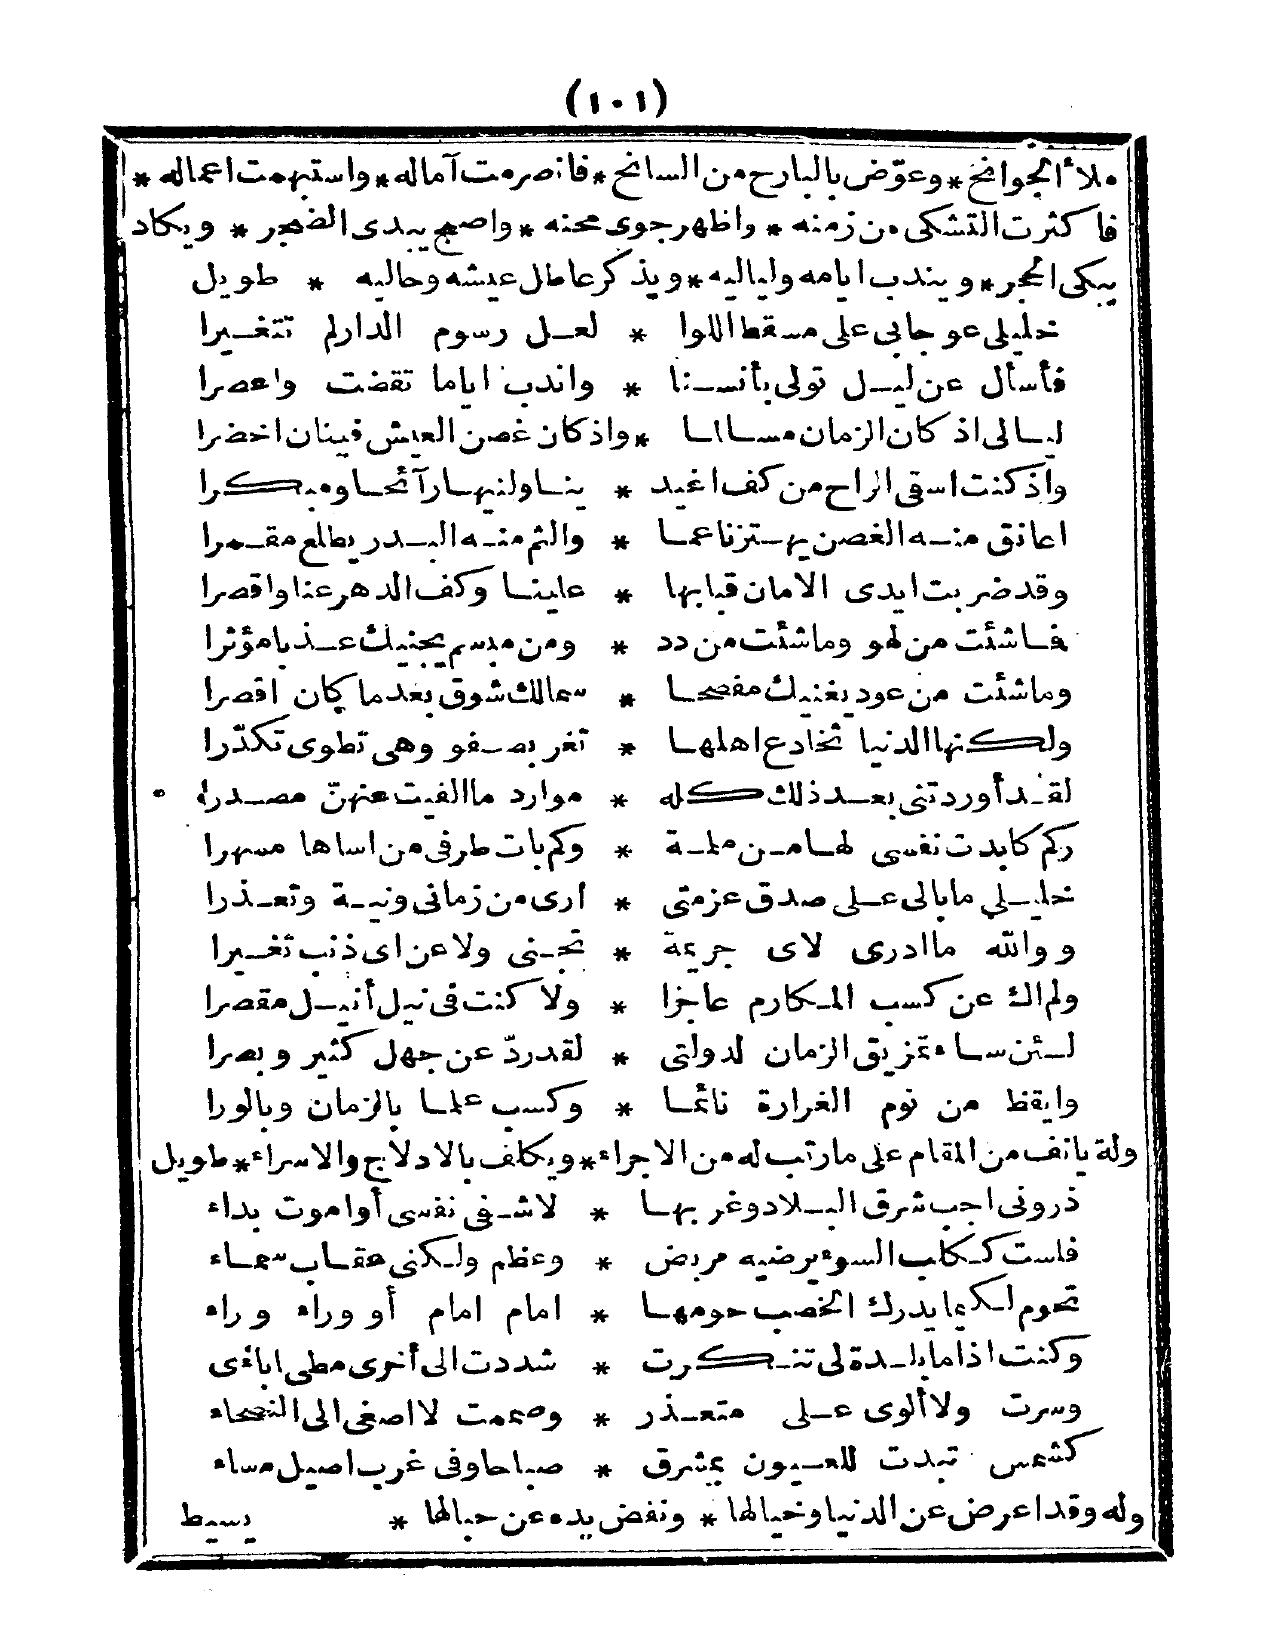 (١٠١)
ملأ الجوانح * وعوّض بالبارح من السانح * فانصرمت آماله * واستبهمت اعماله *
فاكثرت التشكى من زمنه * واظهر جوى محنه * واصبح يبدى الضجر * ويكاد
يبكى الحجر * ويندب ايامه ولياليه * ويذكر عاطل عيشه وحاليه * طويل
خليلى عوجابى على مسقط اللوا * لعل رسوم الدار لم تتغيرا
فأسأل عن ليل تولى بأنسنا * واندب اياما تقضت واعصرا
ليالى اذ كان الزمان مسالما * واذ كان غصن العيش فينان اخضرا
واذ كنت اسقى الراح من كف اغيد * يناولنيها رآئحا ومبكرا
اعانق منه الغصن يهتز ناعما * والثم منه البدر يطلع مقمرا
وقد ضربت ايدى الامان قبابها * علينا وكف الدهر عنا واقصرا
فما شئت من لهو وما شئت من دد * ومن مبسم يجنيك عذبا مؤثرا
وما شئت من عود يغنيك مفصحا * سمالك شوق بعد ما كان اقصرا
ولكنها الدنيا تخادع اهلها * تغر بصفو وهى تطوى تكدّرا
لقد أوردتنى بعد ذلك كله * موارد ما الفيت عنهنّ مصدرا
وكم كابدت نفسى لها من ملمة * وكم بات طرفى من اساها مسهرا
خليلى ما بالى على صدق عزمتى * ارى من زمانى ونية وتعذرا
ووالله ما ادرى لاى جريمة * تجنى ولا عن اى ذنب تغيرا
ولم اك عن كسب المكارم عاجزا * ولا كنت فى نيل أنيل مقصرا
لئن ساء تمزيق الزمان لدولتى * لقد ردّ عن جهل كثير وبصرا
وايقظ من نوم الغرارة نائما * وكسب علما بالزمان وبالورا
وله يانف من المقام على مارتب له من الاجراء * ويكلف بالادلاج والاسراء * طويل
ذرونى اجب شرق البلاد وغربها * لاشفى نفسى أو اموت بداء
فلست ككلب السوء يرضيه مربض * وعظم ولكنى عقاب سماء
تحوم لكيما يدرك الخصب حومها * امام امام أو وراء وراء
وكنت اذا ما بلدة لى تنكرت * شددت الى أخرى مطى ابائى
وسرت ولا ألوى على متعذر * وصممت لا اصغى الى النصحاء
كشمس تبدت للعيون بمشرق * صباحا وفى غرب اصيل مساء
وله وقد اعرض عن الدنيا وخيالها * ونفض يده عن حبالها * بسيط